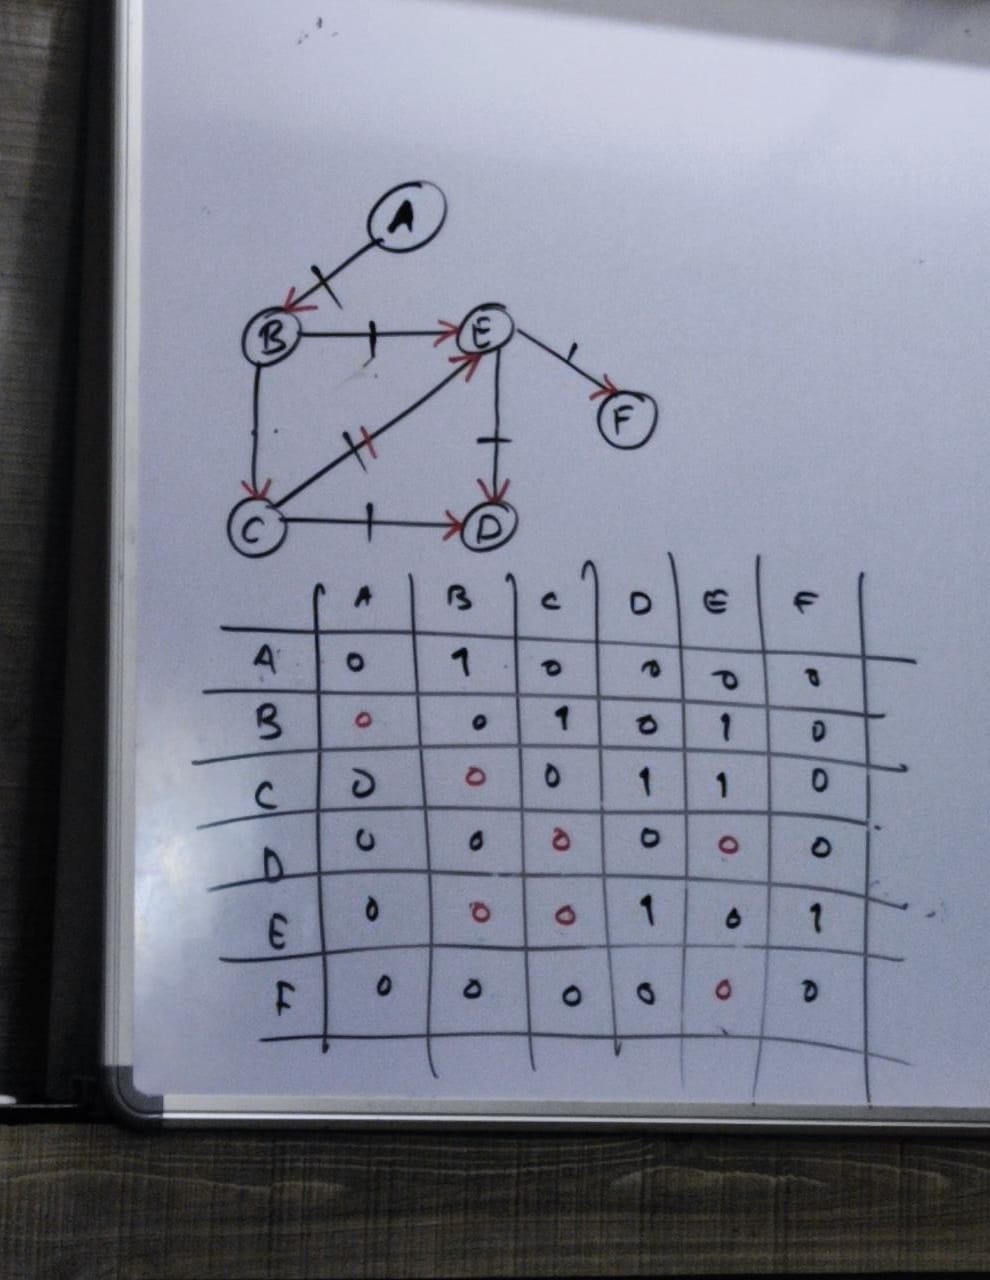 A
B E
F
C D
A B C D E F
A 0 1 0 0 0 0
B 0 0 1 0 1 0
C 0 0 0 1 1 0
D 0 0 0 0 0 0
E 0 0 0 1 0 1
F 0 0 0 0 0 0